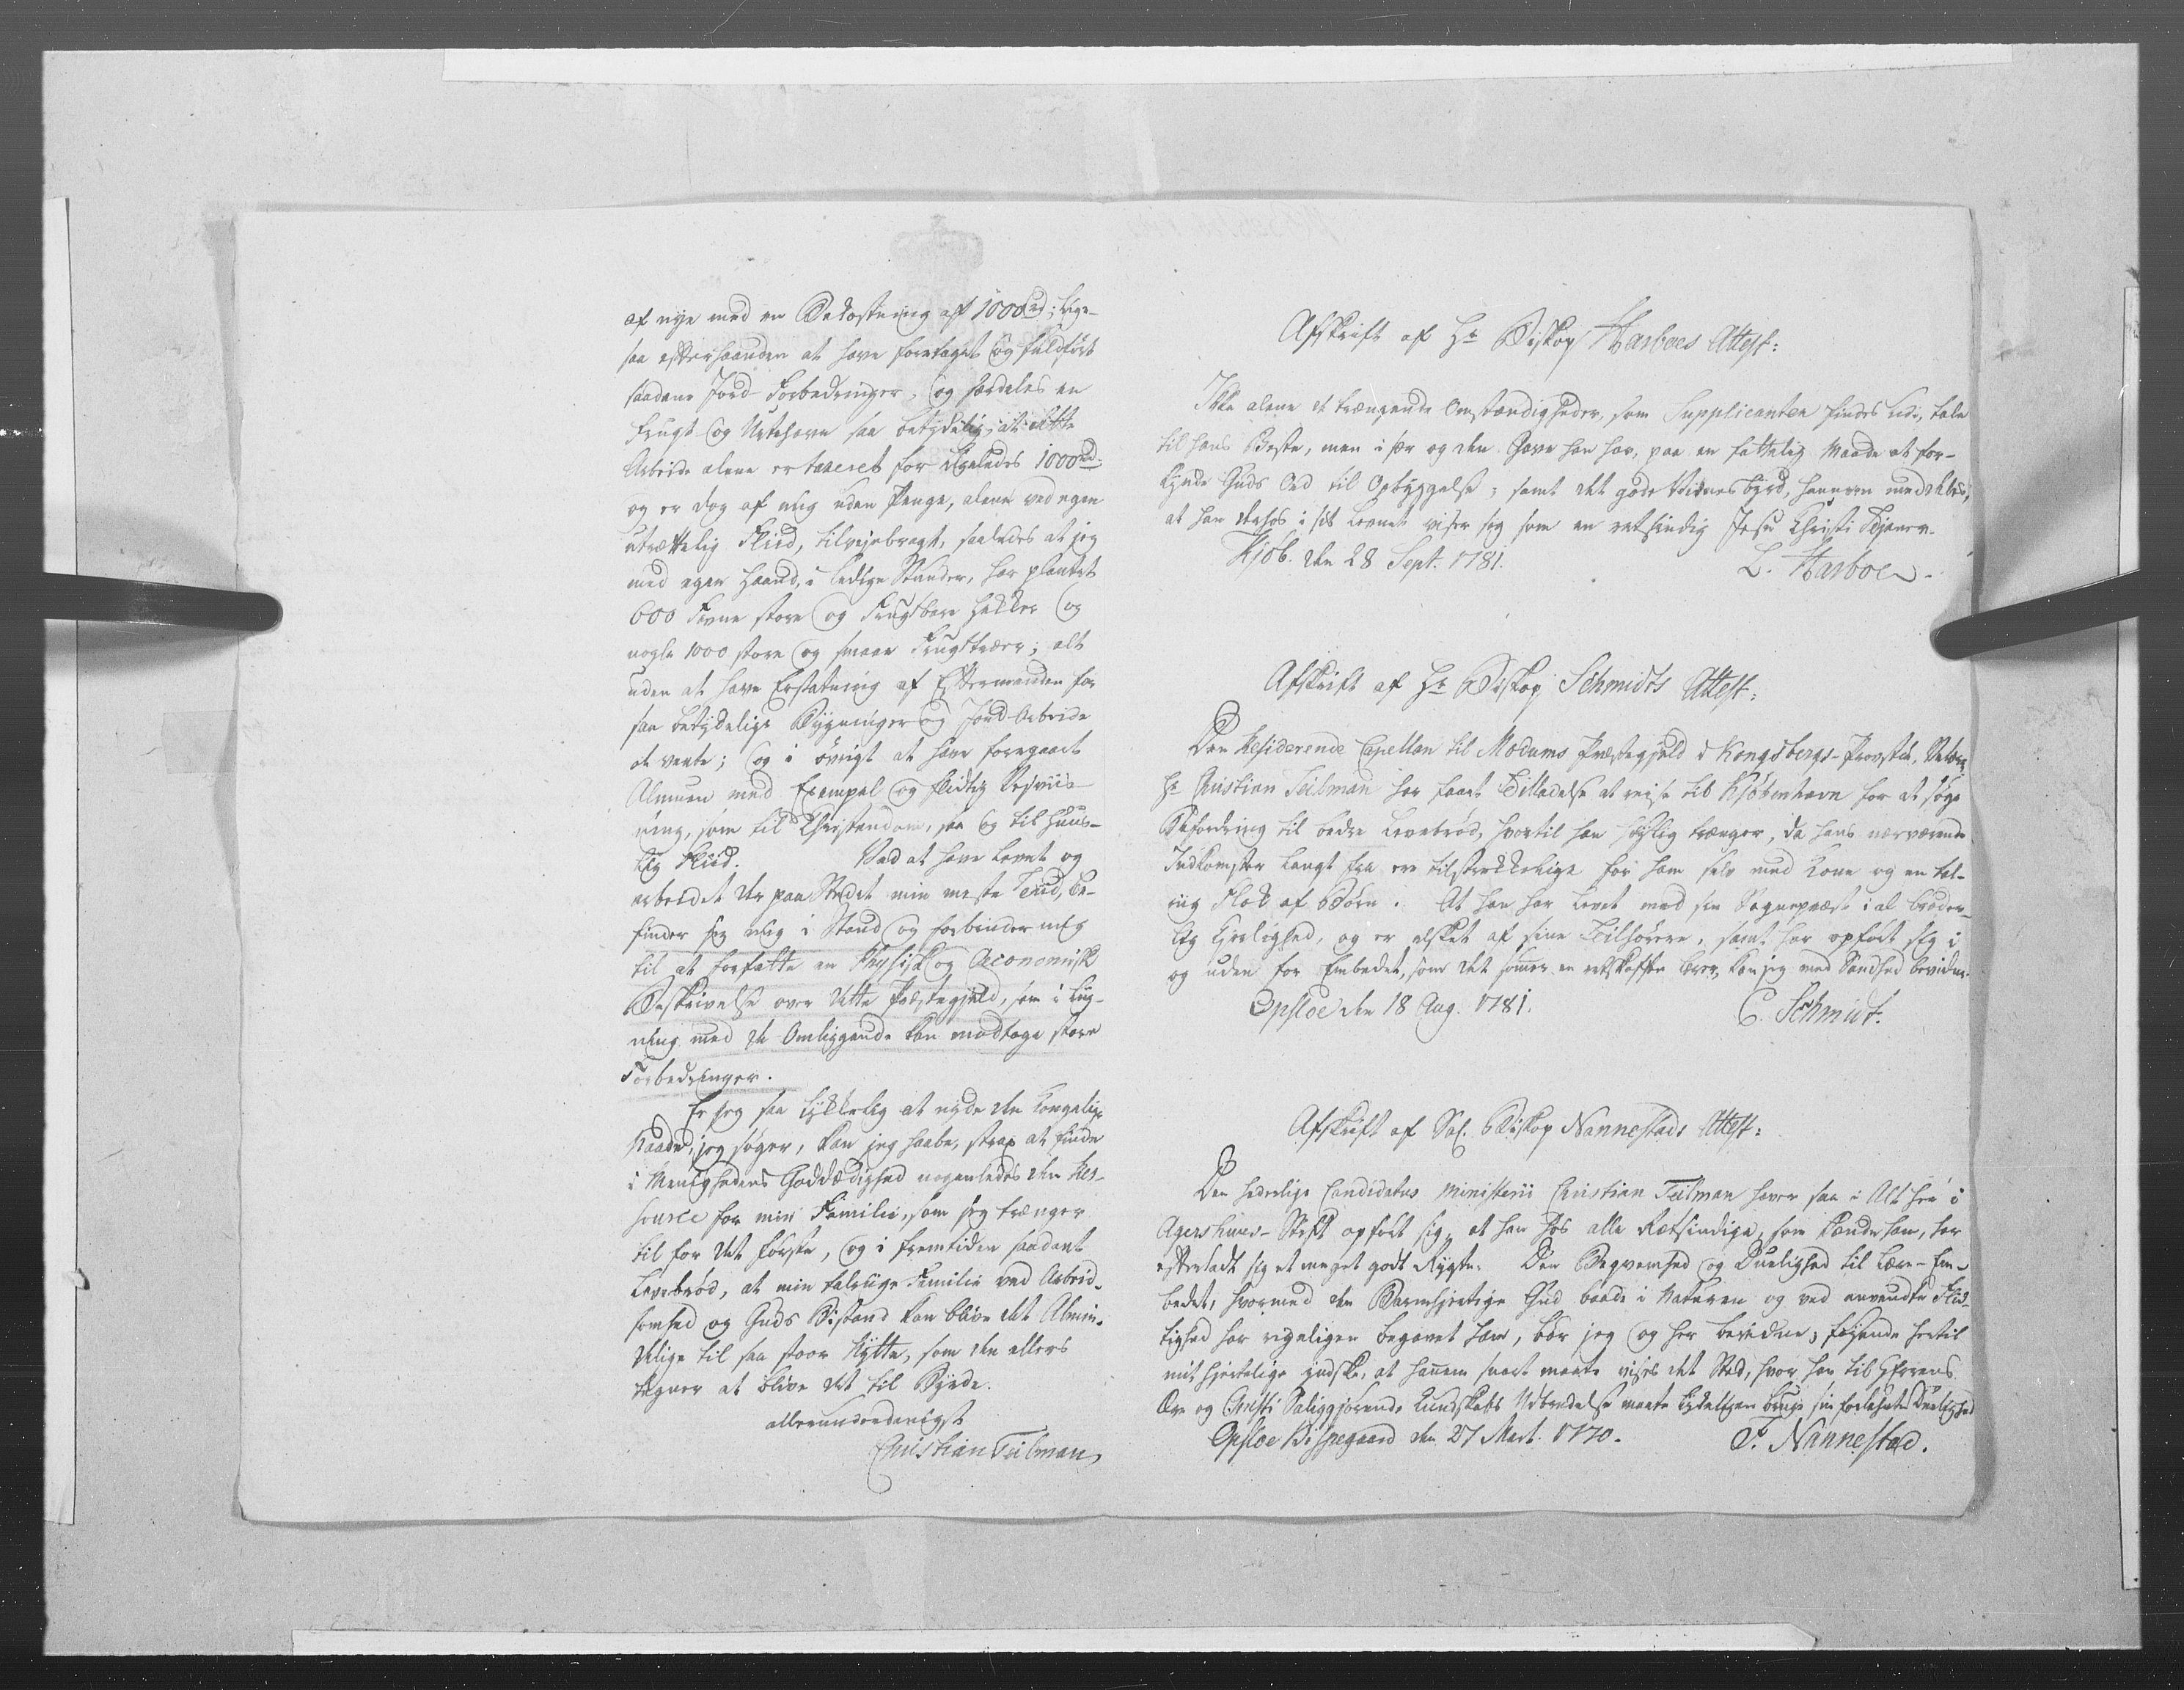 af nye med en Bekostning af 1000 rd; lige-
saa efterhaanden at have foretaget og fuldført
saadane Jord-Forbedringer, og særdeles en
Frugt- og Urtehave saa betydelig, at dette
Arbeide alene er taxeret for ligeledes 1000 rd:
og er dog af mig uden Penge, alene ved egen
utrættelig Fliid, tilvejebragt, saaledes at jeg
med egen Haand, i ledige Stunder, har plantet
600 Favne store og Frugtbare Hekker og
nogle 1000 store og smaae Frugttræer; alt
uden at have Erstatning af Eftermanden for
saa betydelige Bygninger og Jord-Arbeide
at vente; og i øvrigt at have foregaaet
Almuen med Exempel og flidig Underviis-
ning, som til Christendom, saa og til Huus-
lig Fliid. Ved at have levet og
arbeidet her paa Stedet min meste Tiid, be-
finder seg mig i Stand og forbinder mig
til at forfatte en Physisk og Oeconomisk
Beskrivelse over dette Præstegjeld, som i Lig-
ning med de Omliggende kan modtage store
Forbedringer.
Er jeg saa lykkelig at nyde den Kongelige
Naade, jeg søger, kan jeg haabe, strax at finde
i Menighedens Goddædighed nogenledes den Res-
source for min Familie, som jeg trænger
til for det første, og i Fremtiden saadant
Levebrød, at min talrige Familie ved Arbeid-
somhed og Guds Bistand kan blive det Almin-
delige til saa stoor Nytte, som den ellers
tegner at blive det til Byrde.
allerunderdanigst
Christian Teilman
Afskrift af Hr Biskop Harboes Attest:
Ikke alene de trængende Omstændigheder, som Supplicanten findes udi, tale
til hans Beste, men i sær og den Gave han har, paa en fattelig Maade at for-
kynde Guds Ord til Opbyggelse; samt det gode Vidnesbyrd, hannem meddeles,
at han derhos i sit Levnet viser sig som en retsindig Jesu Christi Tjener.
Kjøb. den 28 Sept. 1781.
L. Harboe.
Afskrift af Hr Biskop Schmidts Attest:
Den Residerende Capellan til Modums Præstegjeld i Kongsbergs-Provstie,
Hr Christian Teilman har faaet Tilladelse at rejse til Kjøbenhavn for at søge
Befordring til bedre Levebrød, hvortil han højlig trænger, da hans nærværende
Indkomster langt fra ere tilstrekkelige for ham selv med Kone og en tal-
riig Flok af Børn. At han har levet med sin Sognepræst i al broder-
lig Kjerlighed, og er elsket af sine Tilhørere, samt har opført sig i
og uden for Embedet, som det sømmer en retskaffen Lærer, kan jeg med Sandhed bevidne.
Opsloe den 18 Aug. 1781.
C. Schmidt.
Afskrift af Sal. Biskop Nannestads Attest:
Den hæderlige Candidatus Ministerii Christian Teilman haver saa i Alt her i
Agershuus-Stift opført sig, at han hos alle Retsindige, som kende ham, har
efterladt sig et meget godt Rygte. Den Beqvemhed og Duelighed til Lære-Em-
bedet, hvormed den Barmhjertige Gud baade i Naturen og ved anvendte Flit-
tighed har rigeligen begavet ham, bør jeg og her bevidne; føjende hertil
mit hjertelige Ønske, at hannem snart maate vises det Sted, hvor han til HErrens
Ære og Christi Saliggjørende Kundskabs Udbredelse maate lykkeligen bruge sin forlehnte Duelighed
Opsloe Bispegaard den 27 Mart. 1770.
F. Nannestad.